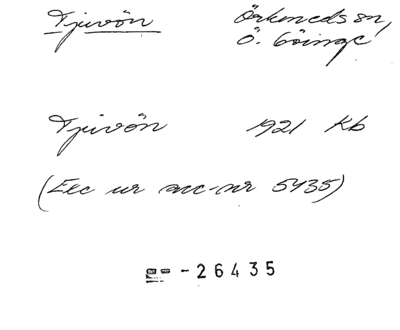 Tjuvön Örkeneds sn,
Ö. Göinge
Tjuvön 1921 Kb
(Exc ur acc-nr 5435)
-26435